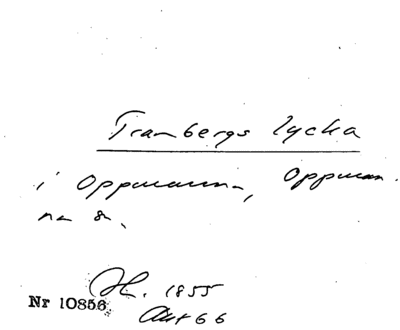 Tranbergs lycka
i Oppmanna, Oppman-
na sn.
H. 1855
Akt 66
Nr 10856